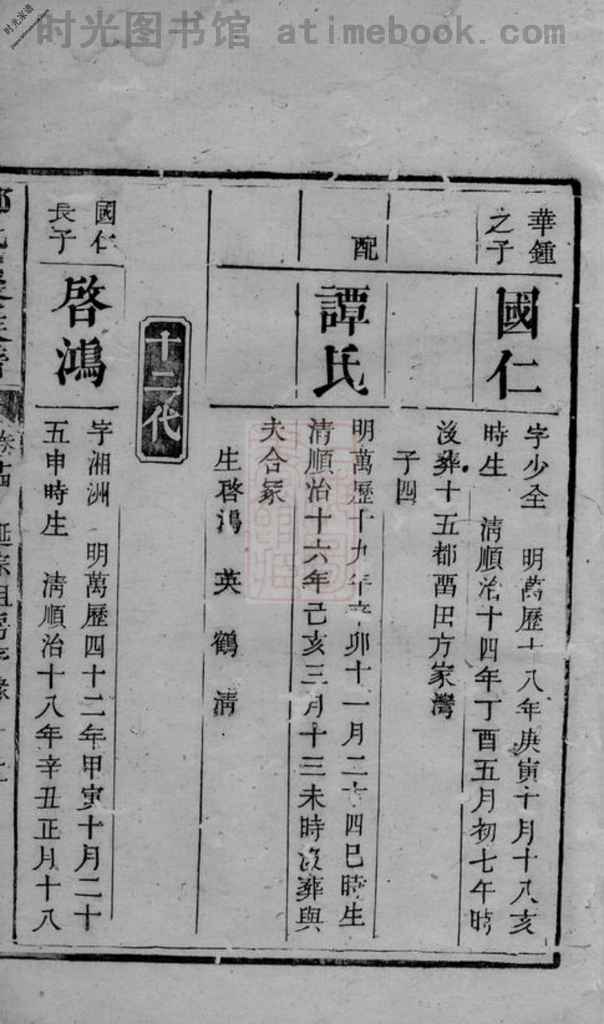 时光图书馆 atimebook.com
时光家谱
華鍾
之子
國仁
字少全 明萬歷十八年庚寅十月十八亥
時生 清順治十四年丁酉五月初七午時
沒葬十五都畱田方家灣
子四
配
譚氏
明萬歷十九年辛卯十一月二十四巳時生
清順治十六年己亥三月十三未時沒葬與
夫合冢
生啓鴻 英 鶴 清
十二代
國仁
長子
啓鴻
字湘洲 明萬歷四十二年甲寅十月二十
五申時生 清順治十八年辛丑正月十八